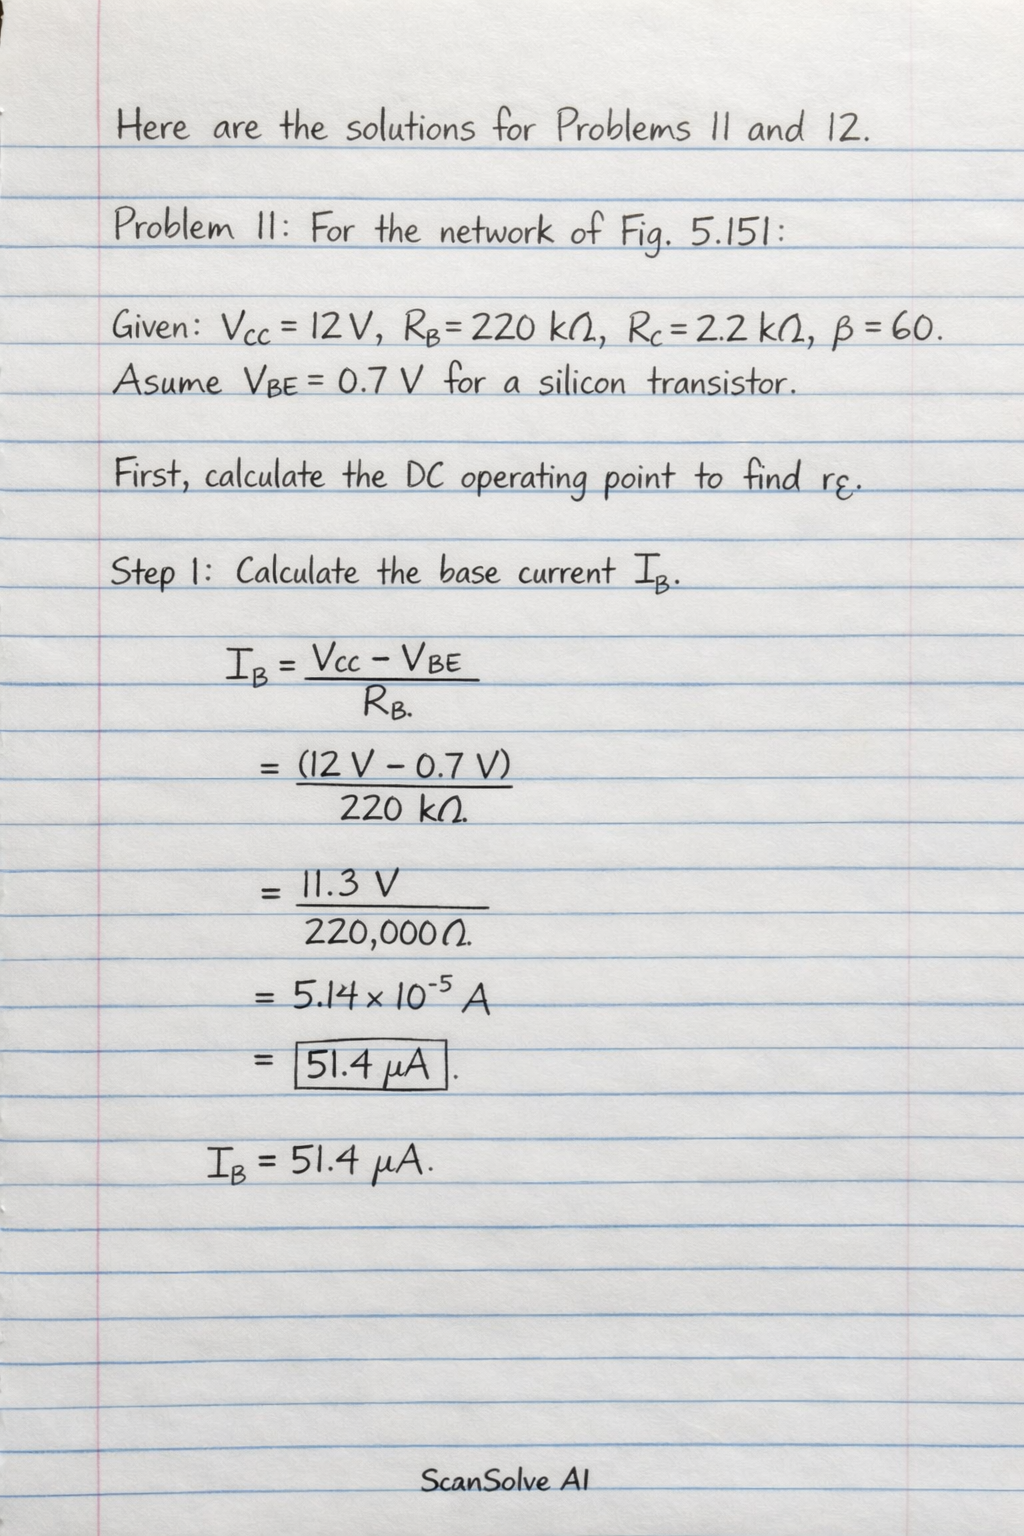 Here are the solutions for Problems 11 and 12.
Problem 11: For the network of Fig. 5.151:
Given: VCC = 12 V, RB = 220 kΩ, RC = 2.2 kΩ, β = 60.
Asume VBE = 0.7 V for a silicon transistor.
First, calculate the DC operating point to find rε.
Step 1: Calculate the base current IB.
IB = VCC - VBE
RB.
= (12 V - 0.7 V)
220 kΩ.
= 11.3 V
220,000 Ω.
= 5.14 × 10⁻⁵ A
= 51.4 μA.
IB = 51.4 μA.
ScanSolve AI